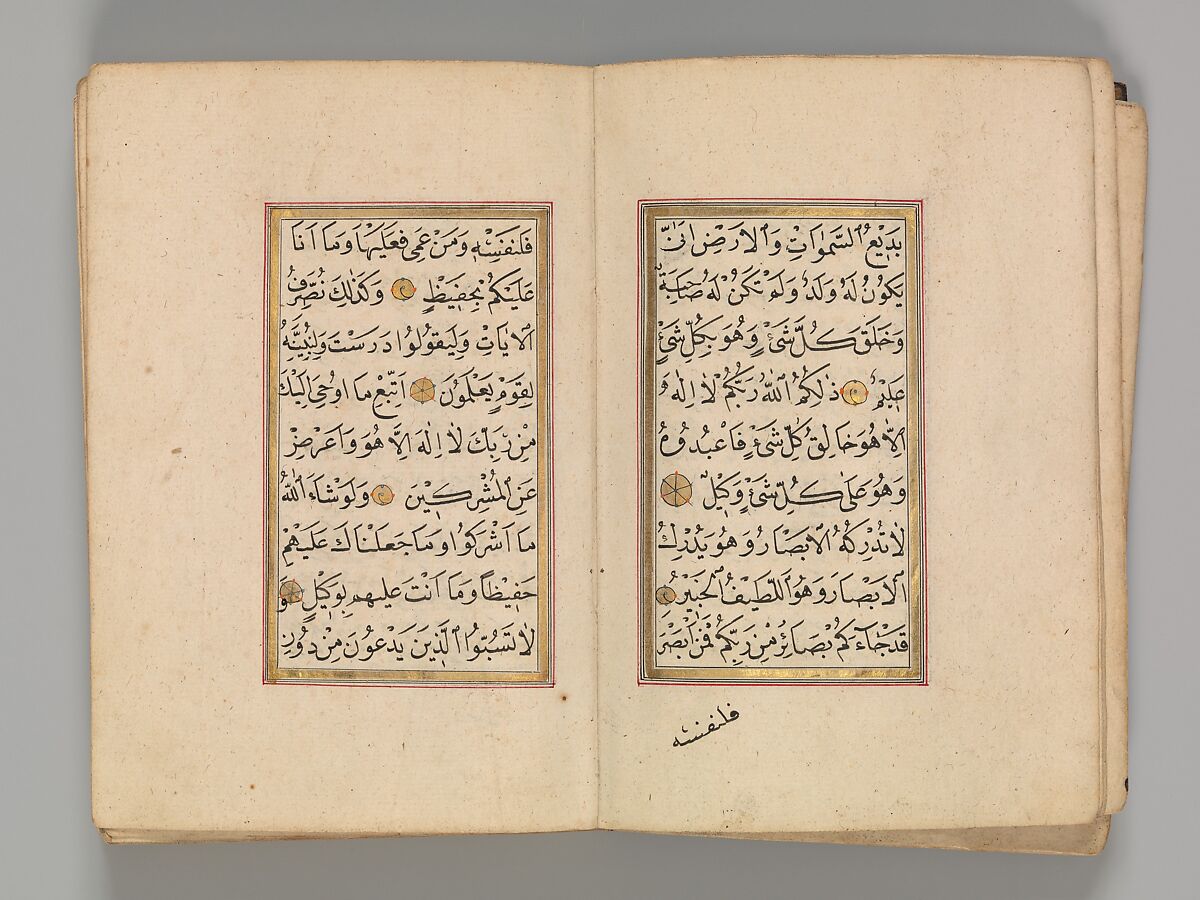 بَدِيعُ السَّمٰوَاتِ وَالْاَرْضِ اَنّٰى
يَكُونُ لَهُ وَلَدٌ وَلَمْ تَكُنْ لَهُ صَاحِبَةٌ
وَخَلَقَ كُلَّ شَىْءٍ وَهُوَ بِكُلِّ شَىْءٍ
عَلِيمٌ ذٰلِكُمُ اللّٰهُ رَبُّكُمْ لَا اِلٰهَ
اِلَّا هُوَ خَالِقُ كُلِّ شَىْءٍ فَاعْبُدُوهُ
وَهُوَ عَلٰى كُلِّ شَىْءٍ وَكِيلٌ
لَا تُدْرِكُهُ الْاَبْصَارُ وَهُوَ يُدْرِكُ
الْاَبْصَارَ وَهُوَ اللَّطِيفُ الْخَبِيرُ
قَدْ جَاءَكُمْ بَصَائِرُ مِنْ رَبِّكُمْ فَمَنْ اَبْصَرَ
فلنفسه
فَلِنَفْسِهِ وَمَنْ عَمِىَ فَعَلَيْهَا وَمَا اَنَا
عَلَيْكُمْ بِحَفِيظٍ وَكَذٰلِكَ نُصَرِّفُ
الْاٰيَاتِ وَلِيَقُولُوا دَرَسْتَ وَلِنُبَيِّنَهُ
لِقَوْمٍ يَعْلَمُونَ اِتَّبِعْ مَا اُوحِىَ اِلَيْكَ
مِنْ رَبِّكَ لَا اِلٰهَ اِلَّا هُوَ وَاَعْرِضْ
عَنِ الْمُشْرِكِينَ وَلَوْ شَاءَ اللّٰهُ
مَا اَشْرَكُوا وَمَا جَعَلْنَاكَ عَلَيْهِمْ
حَفِيظًا وَمَا اَنْتَ عَلَيْهِمْ بِوَكِيلٍ وَ
لَا تَسُبُّوا الَّذِينَ يَدْعُونَ مِنْ دُونِ